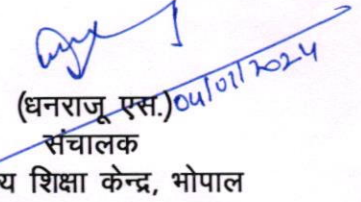 (धनराजू एस.) 04/01/2024
संचालक
य शिक्षा केन्द्र, भोपाल